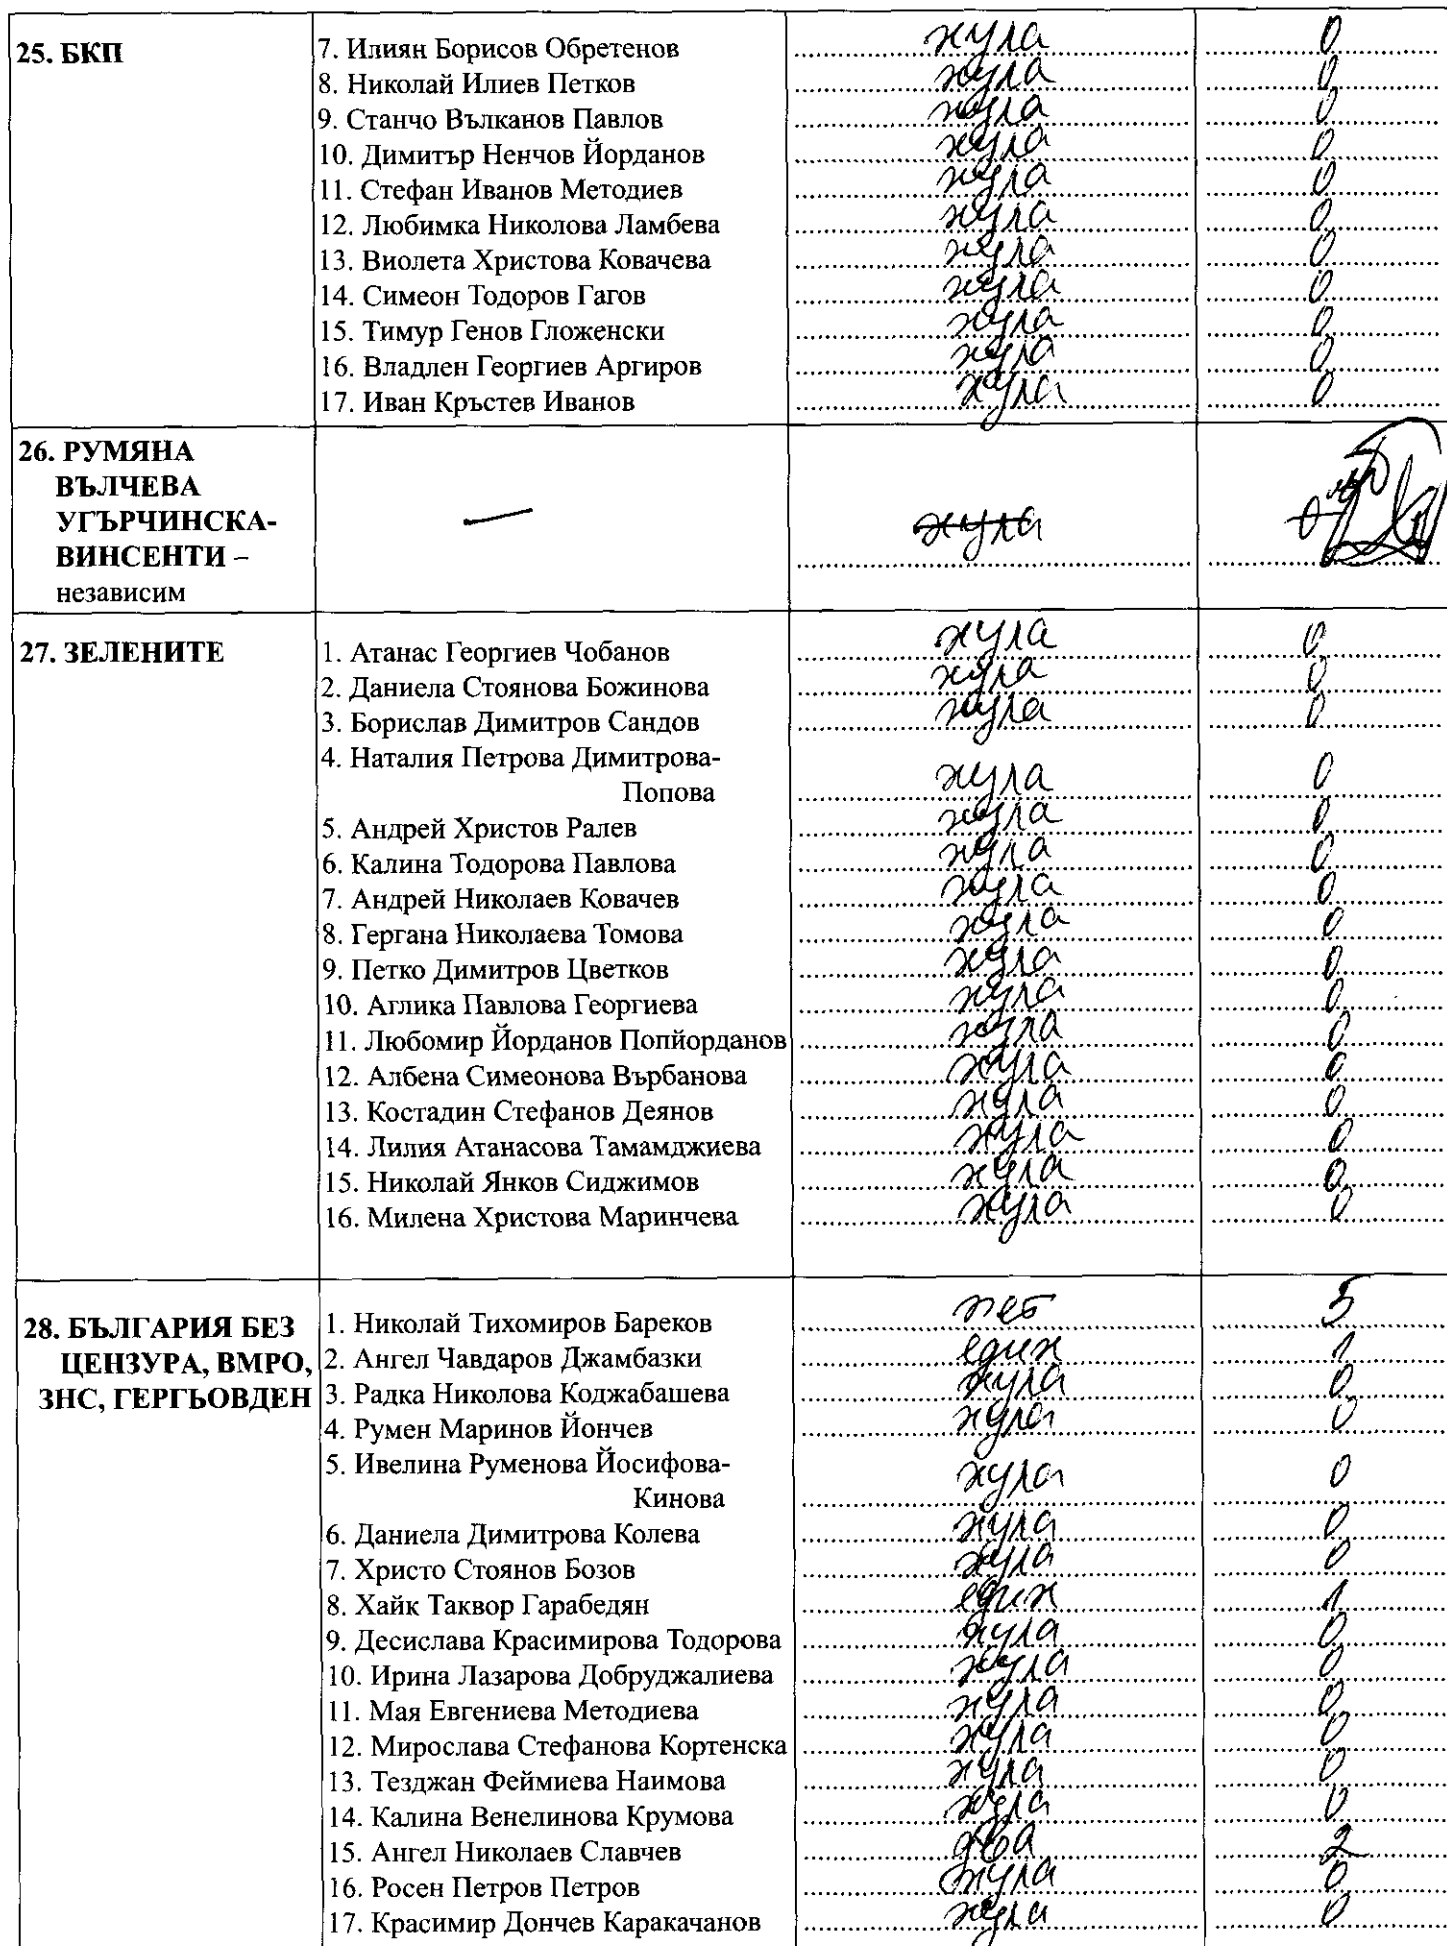 25. БКП
7. Илиян Борисов Обретенов нула 0
8. Николай Илиев Петков нула 0
9. Станчо Вълканов Павлов нула 0
10. Димитър Ненчов Йорданов нула 0
11. Стефан Иванов Методиев нула 0
12. Любимка Николова Ламбева нула 0
13. Виолета Христова Ковачева нула 0
14. Симеон Тодоров Гагов нула 0
15. Тимур Генов Гложенски нула 0
16. Владлен Георгиев Аргиров нула 0
17. Иван Кръстев Иванов нула 0
26. РУМЯНА
ВЪЛЧЕВА
УГЪРЧИНСКА-
ВИНСЕНТИ –
независим
— нула 0
27. ЗЕЛЕНИТЕ
1. Атанас Георгиев Чобанов нула 0
2. Даниела Стоянова Божинова нула 0
3. Борислав Димитров Сандов нула 0
4. Наталия Петрова Димитрова-
Попова нула 0
5. Андрей Христов Ралев нула 0
6. Калина Тодорова Павлова нула 0
7. Андрей Николаев Ковачев нула 0
8. Гергана Николаева Томова нула 0
9. Петко Димитров Цветков нула 0
10. Аглика Павлова Георгиева нула 0
11. Любомир Йорданов Попйорданов нула 0
12. Албена Симеонова Върбанова нула 0
13. Костадин Стефанов Деянов нула 0
14. Лилия Атанасова Тамамджиева нула 0
15. Николай Янков Сиджимов нула 0
16. Милена Христова Маринчева нула 0
28. БЪЛГАРИЯ БЕЗ
ЦЕНЗУРА, ВМРО,
ЗНС, ГЕРГЬОВДЕН
1. Николай Тихомиров Бареков пет 5
2. Ангел Чавдаров Джамбазки един 1
3. Радка Николова Коджабашева нула 0
4. Румен Маринов Йончев нула 0
5. Ивелина Руменова Йосифова-
Кинова нула 0
6. Даниела Димитрова Колева нула 0
7. Христо Стоянов Бозов нула 0
8. Хайк Таквор Гарабедян един 1
9. Десислава Красимирова Тодорова нула 0
10. Ирина Лазарова Добруджалиева нула 0
11. Мая Евгениева Методиева нула 0
12. Мирослава Стефанова Кортенска нула 0
13. Тезджан Феймиева Наимова нула 0
14. Калина Венелинова Крумова нула 0
15. Ангел Николаев Славчев два 2
16. Росен Петров Петров нула 0
17. Красимир Дончев Каракачанов нула 0